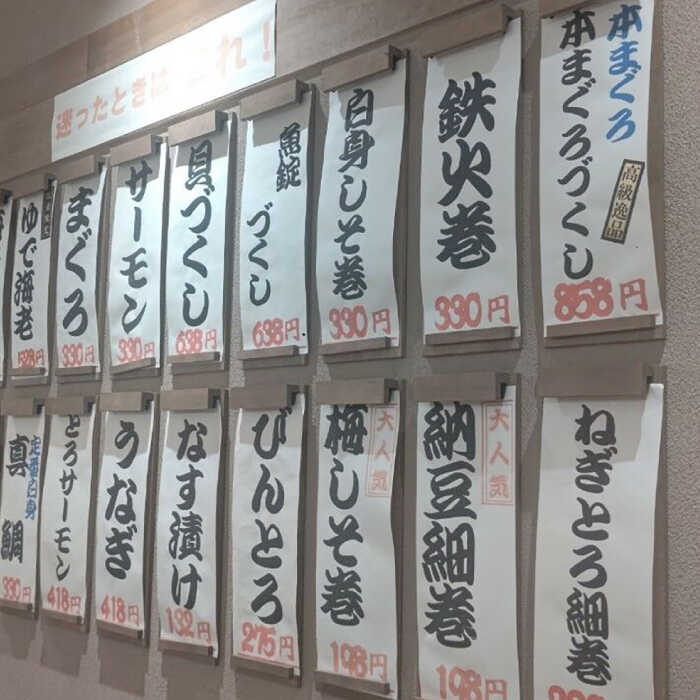 迷ったときはこれ!
本まぐろ
本まぐろづくし
高級逸品
858円
鉄火巻
330円
白身しそ巻
330円
魚錠
づくし
638円
貝づくし
638円
サーモン
330円
まぐろ
330円
ゆで海老
528円
ねぎとろ細巻
大人気
納豆細巻
198円
大人気
梅しそ巻
198円
びんとろ
275円
なす漬け
132円
うなぎ
418円
とろサーモン
418円
定番白身
真鯛
330円